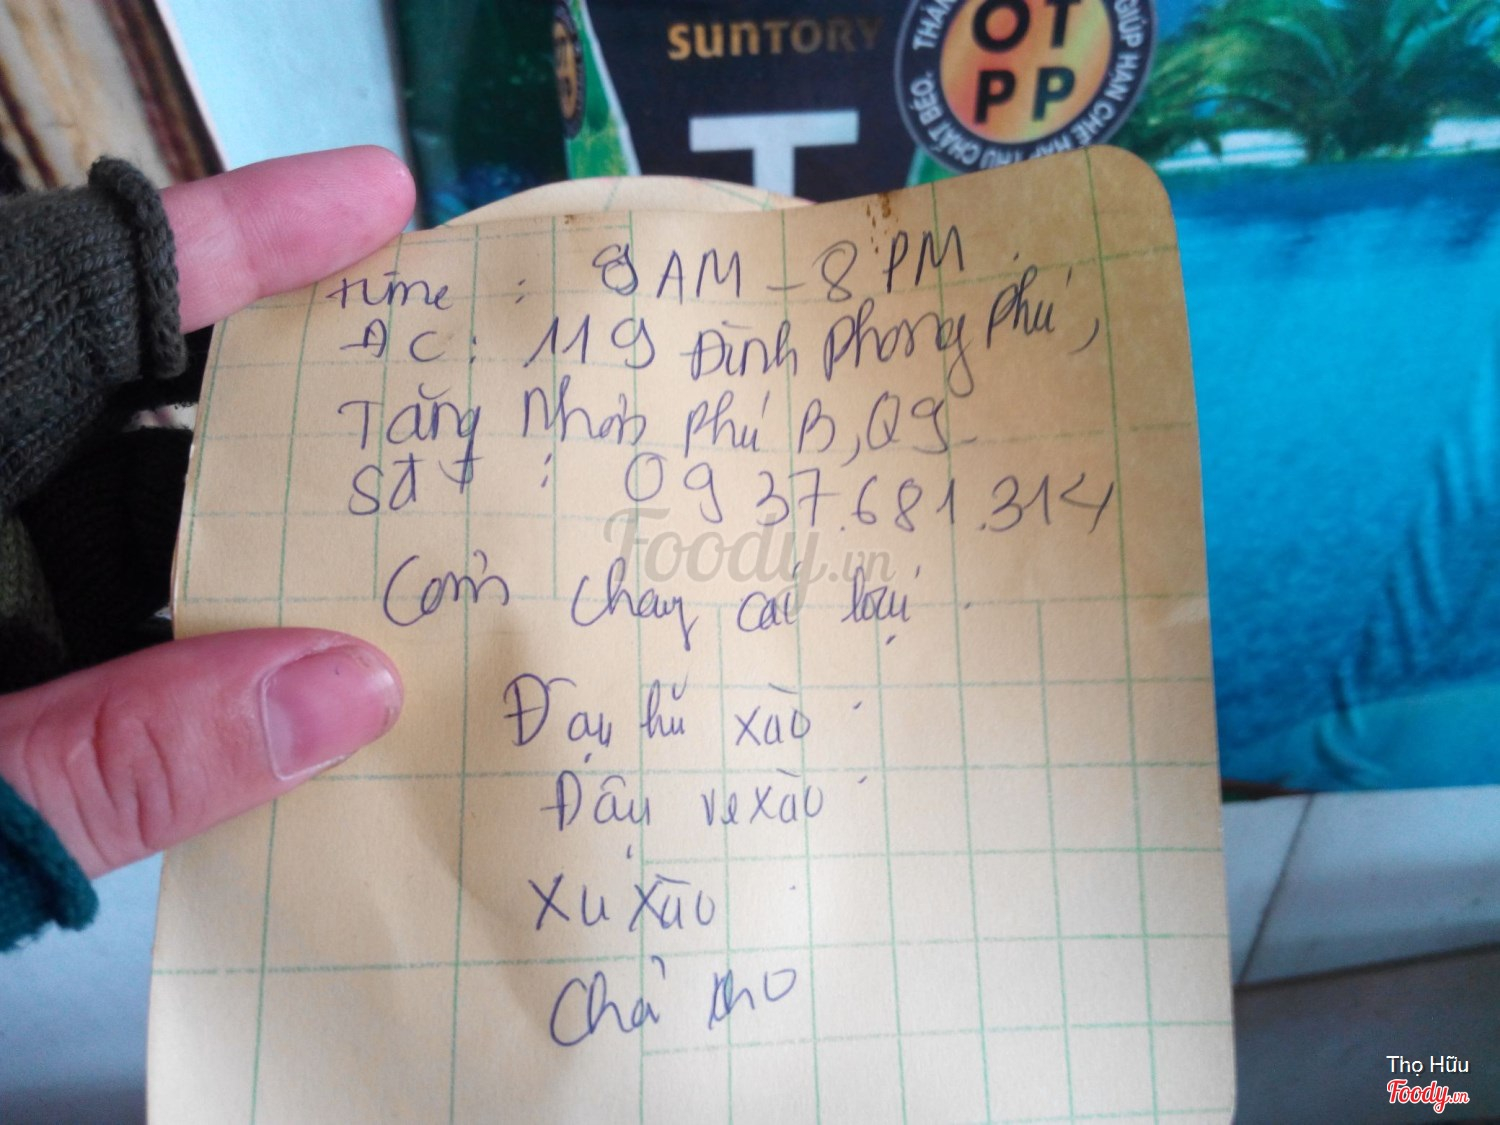 SUNTORY
T
OTPP
GIÚP HẠN CHẾ HẤP THU CHẤT BÉO.
time : 8 AM - 8 PM
ĐC : 119 Đình Phong Phú,
Tăng Nhơn Phú B, Q9
SĐT : 0937.681.314
Cơm chay các loại
Đậu hũ xào
Đậu ve xào
Xu xào
Chả kho
Foody.vn
Thọ Hữu
Foody.vn